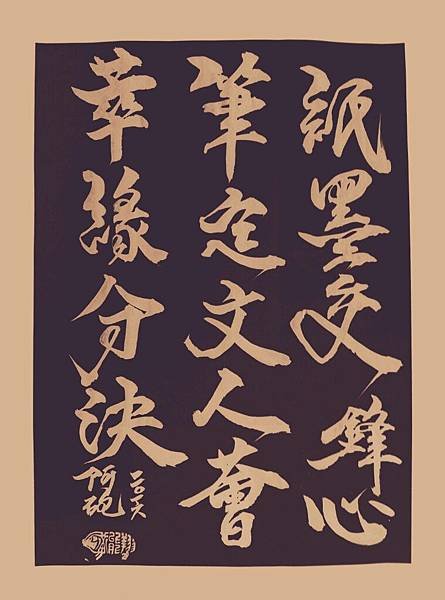 紙墨交鋒心
筆定文人薈
萃緣分決
二〇一六
阿砲